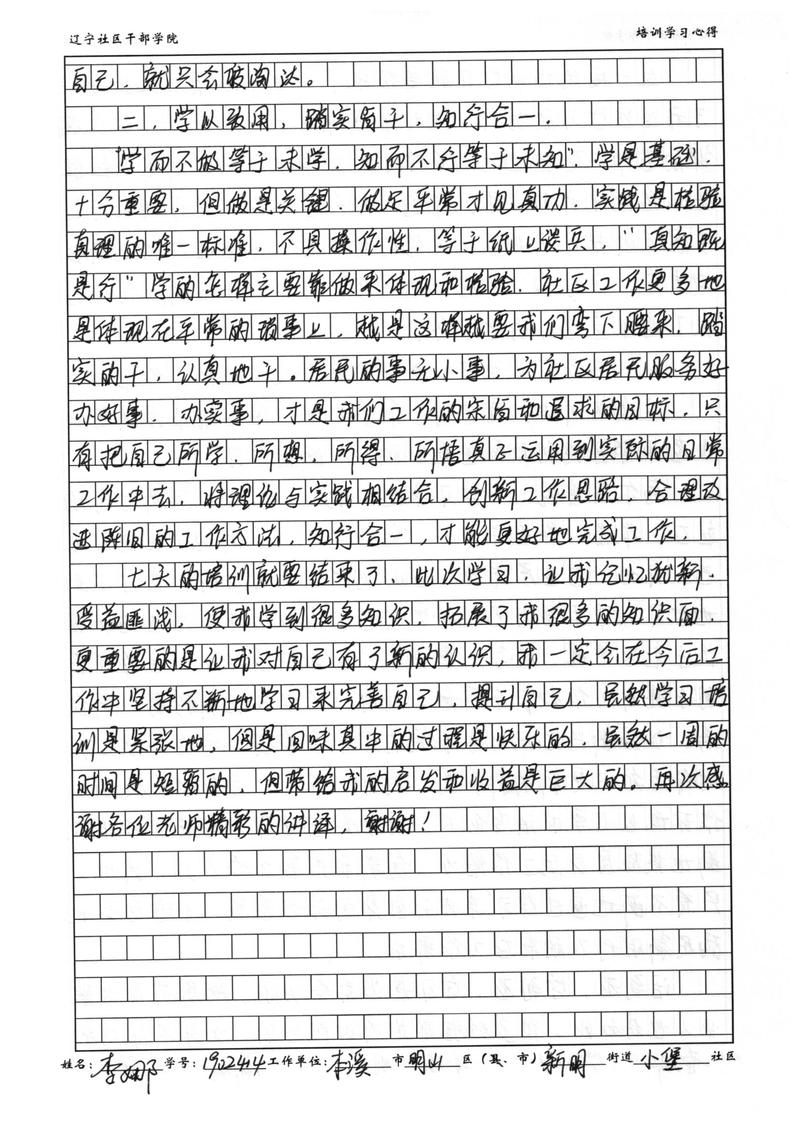 辽宁社区干部学院 培训学习心得
自己，就只会被淘汰。
二，学以致用，踏实肯干，知行合一．
“学而不做等于未学．知而不行等于未知”．学是基础．
十分重要．但做是关键．做足平常才见真功．实践是检验
真理的唯一标准，不具操作性，等于纸上谈兵，“真知既
是行”学的怎样主要靠做来体现和检验．社区工作更多地
是体现在平常的琐事上，越是这样越要我们弯下腰来．踏
实的干，认真地干。居民的事无小事，为社区居民服务好
办好事．办实事，才是我们工作的宗旨和追求的目标．只
有把自己所学．所想．所得．所悟真正运用到实际的日常
工作中去，将理论与实践相结合．创新工作思路．合理改
进陈旧的工作方法，知行合一，才能更好地完成工作．
七天的培训就要结束了、此次学习．让我记忆犹新．
受益匪浅，使我学到很多知识．拓展了我很多的知识面．
更重要的是让我对自己有了新的认识，我一定会在今后工
作中坚持不断地学习来完善自己，提升自己，虽然学习培
训是紧张地，但是回味其中的过程是快乐的．虽然一周的
时间是短暂的，但带给我的启发和收益是巨大的。再次感
谢各位老师精彩的讲译，谢谢！
姓名：李娜 学号：1902414 工作单位：本溪 市 明山 区（县、市）新明 街道 小堡 社区